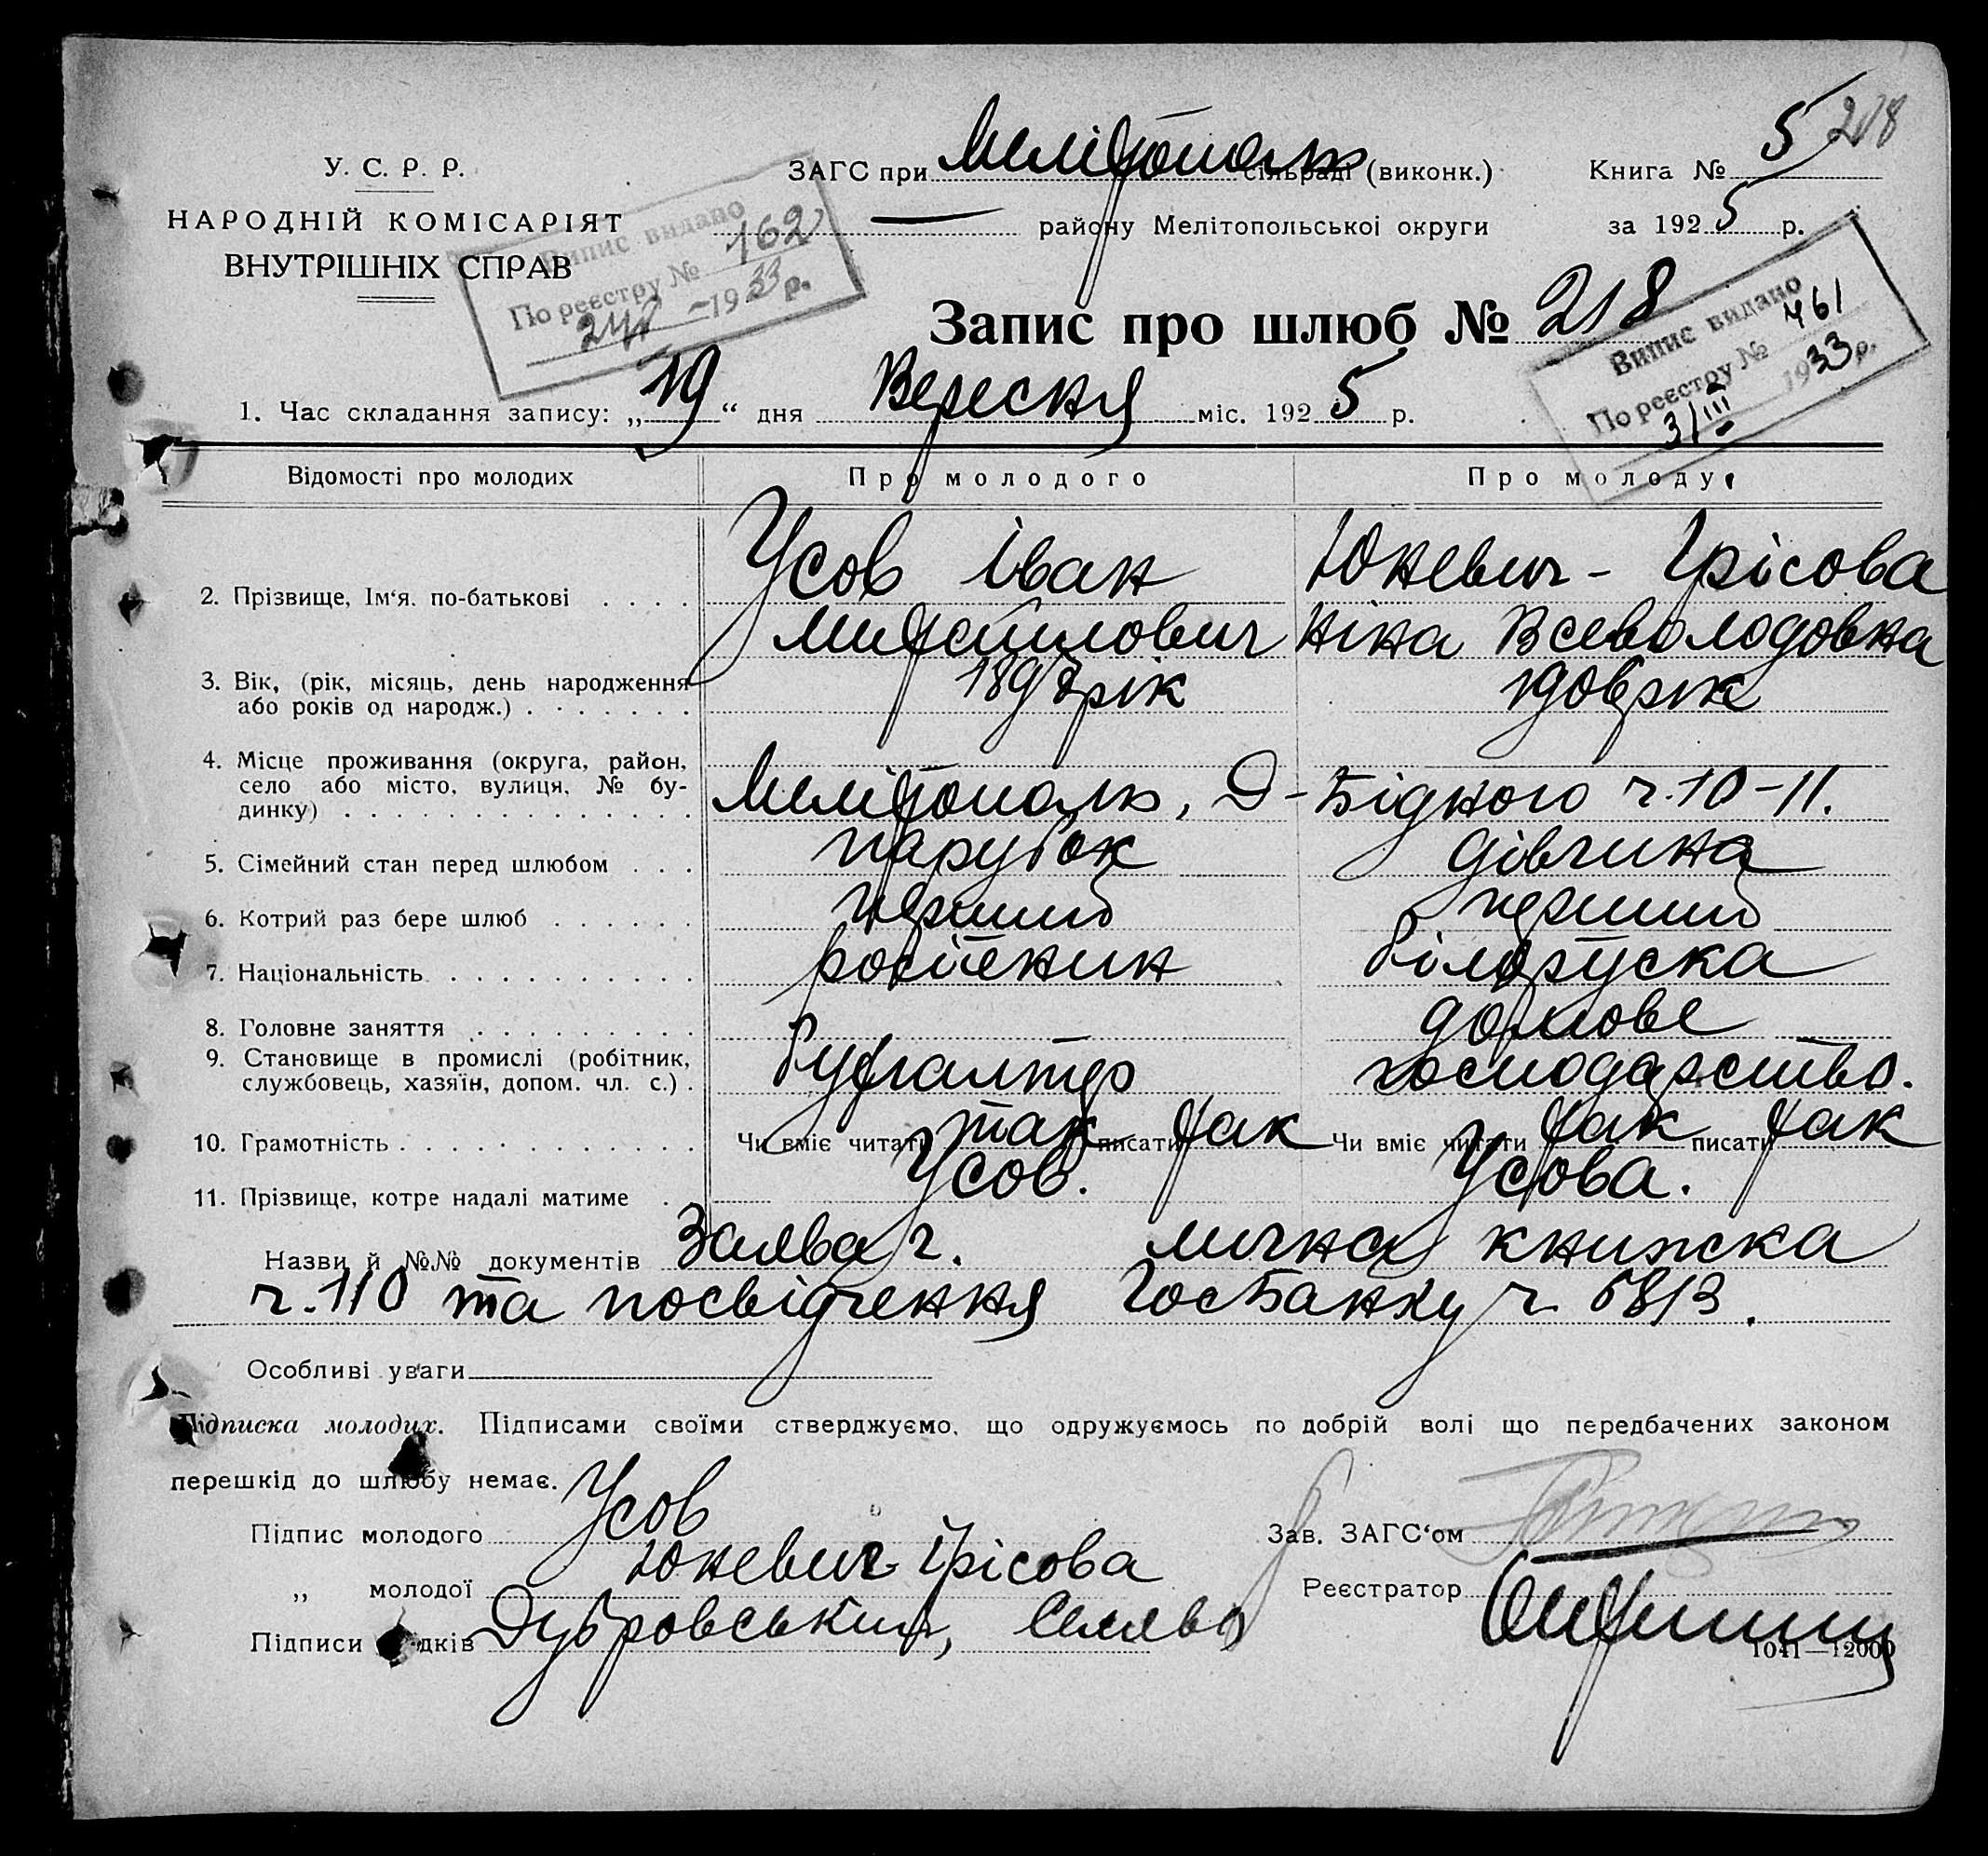 5 218
У. С. Р. Р.
ЗАГС при Мелітополь сільраді (виконк.)
Книга №
НАРОДНІЙ КОМІСАРІЯТ
району Мелітопольської округи
за 1925 р.
ВНУТРІШНІХ СПРАВ
Випис видано
По реєстру № 162
24/ -1933 р.
Запис про шлюб № 218
Випис видано
По реєстру № 461
31/III 1933 р.
1. Час складання запису: „19“ дня Вересня міс. 1925 р.
Відомості про молодих
Про молодого
Про молоду
2. Прізвище, Ім'я. по-батькові . . . .
Усов Іван
Михайлович
Юневич - Грісова
Ніна Всеволодовна
3. Вік, (рік, місяць, день народження
або років од народж.) . . . . . . .
рік
рік
4. Місце проживання (округа, район,
село або місто, вулиця, № бу-
динку) . . . . . . . . . . . . . .
Мелітополь, Д-Бідного ч. 10-11.
5. Сімейний стан перед шлюбом . . .
парубок
дівчина
6. Котрий раз бере шлюб . . . . . .
перший
перший
7. Національність . . . . . . . . . .
росіенин
білоруска
8. Головне заняття . . . . . . . . .
9. Становище в промислі (робітник,
службовець, хазяїн, допом. чл. с.) .
бухгалтер
домове
господарство.
10. Грамотність . . . . . . . . . . . .
Чи вміє читати так писати так
Чи вміє читати так писати так
11. Прізвище, котре надалі матиме .
Усов.
Усова.
Назви й №№ документів Заява ч. лична книжка
ч. 110 та посвідчення ГосБанку ч. 6813.
Особливі уваги
Підписка молодих. Підписами своїми стверджуємо, що одружуємось по добрій волі що передбачених законом
перешкід до шлюбу немає.
Підпис молодого Усов
Зав. ЗАГС'ом
„ молодої Юневич Грісова
Реєстратор
Підписи дків Дубровський,
1041—12000